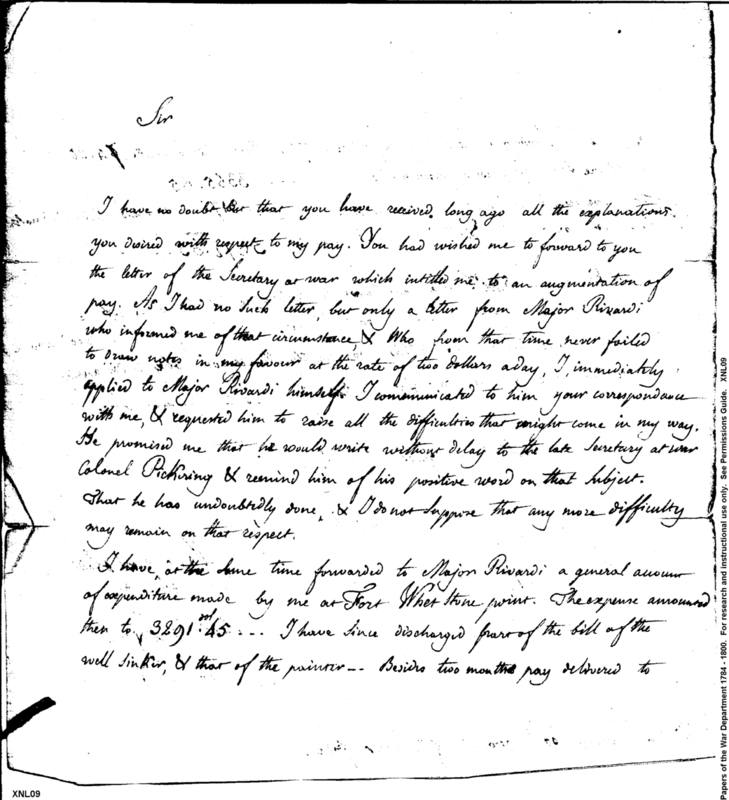 Sir
I have no doubt but that you have received, long ago all the explanations
you desired with respect to my pay. You had wished me to forward to you
the letter of the Secretary at war which intitled me to an augmentation of
pay. As I had no such letter, but only a letter from Major Rivardi
who informed me of that circumstance, & Who from that time never failed
to draw notes in my favour at the rate of two dollars a day, I, immediately
applied to Major Rivardi himself. I communicated to him your correspondance
with me, & requested him to raise all the difficulties that might come in my way.
He promised me that he would write without delay to the late Secretary at war
Colonel Pickring & remind him of his positive word on that subject.
That he has undoubtedly done, & I do not suppose that any more difficulty
may remain on that respect.
I have, at the same time forwarded to Major Rivardi a general account
of expenditure made by me at Fort Whet Stone point. The expense amounted
then to 3291 dol 45 ... I have since discharged part of the bill of the
well sinker, & that of the painter -- Besides two months pay delivered to
XNL09
Papers of the War Department 1784 - 1800. For research and instructional use only. See Permissions Guide. XNL09